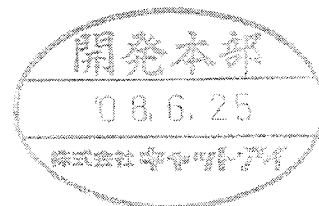 開発本部
'08.6.25
株式会社キャットアイ